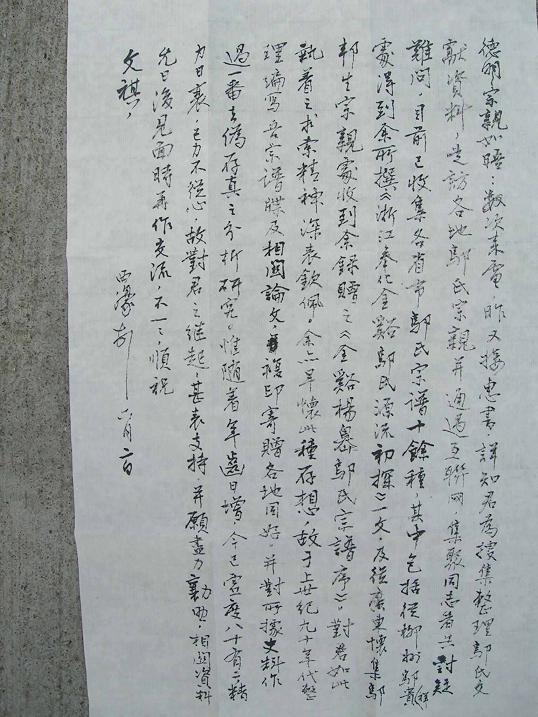 德明宗親如晤 數次來電，昨又接惠書，詳知君為搜集整理鄔氏文
獻資料，走訪各地鄔氏宗親并通過互聯網集聚同志者共對疑
難問 目前已收集各省市鄔氏宗譜十餘種，其中包括從柳州鄔
處得到余所撰《浙江奉化金谿鄔氏源流初探》一文，及從廣東懷集鄔
邦生宗親處收到余錄贈之《金谿楊 鄔氏宗譜序》。對君如此
執着之求索精神深表欽佩。余亦早懷此種存想，故于上世紀九十年代整
理編寫吾宗譜牒及相關論文，複印寄贈各地同好 并對所據史料作
過一番去偽存真之分析研究。惟隨着年齒日增 今已虛度八十有二 精
力日衰，已力不從心 故對君之繼起 甚表支持，并願盡力襄助，相關資料
允日後見面時再作交流，不一一 順祝
文祺，
六月 日